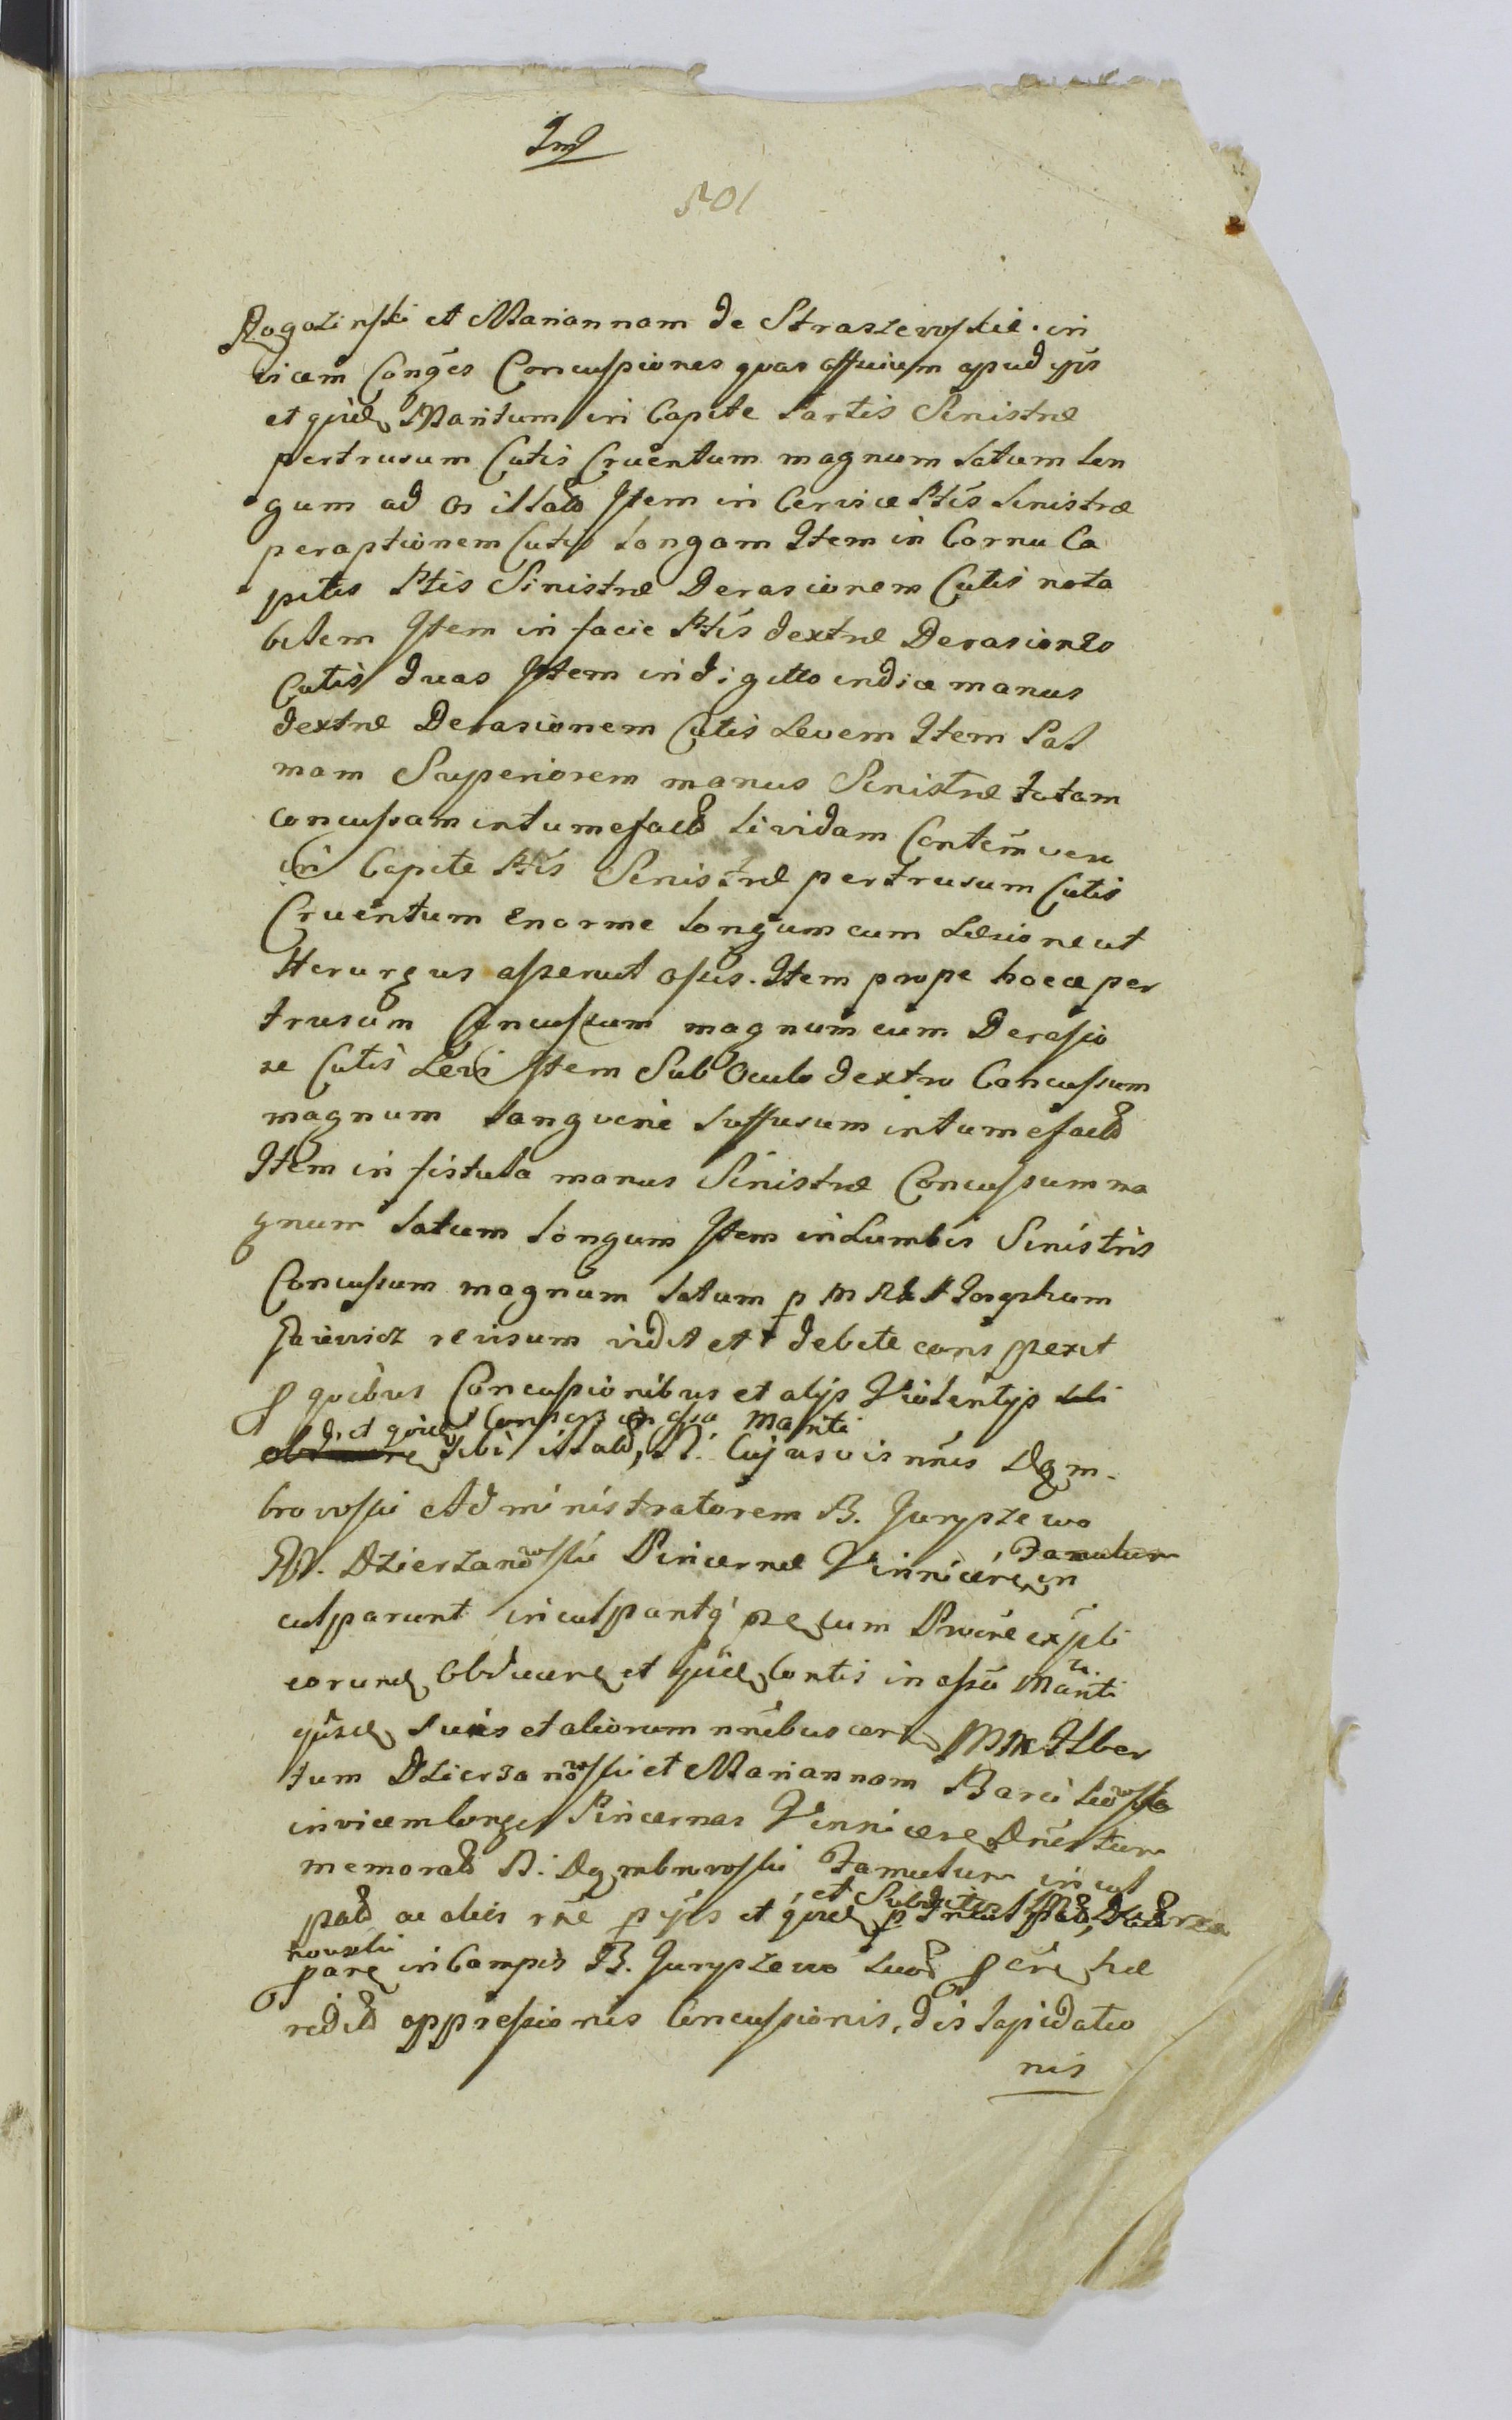 501
Rogozinski et Mariannam de Straszewskie in
vicem Conges Concussiones quas officium apud ipis
et quid Maritum in Capite Partis Sinistræ
pertrusum Cutis Cruentum magnum Latum Lon
gum ad os illatd Item in Cervice Ptis Sinistræ
peraptionem Cutis Longam Item in Cornu Ca
pitis Ptis Sinistræ Derasionem Cutis nota
bilem Item in facie Ptis dextræ Derasiones
Cutis duas Item in digitto indice manus
dextræ Derasionem Cutis Levem Item Pal
mam Superiorem manus Sinistræ totam
concussam intumefactd Lividam Contem vero
in Capite Ptis Sinistræ pertrusum Cutis
Cruentum Enorme Longum cum Læsione ut
Herurgus asseruit ossis. Item prope hocce per
trusum Concussum magnum cum Derasio
ne Cutis Levi Item Sub Oculo dextro Concussum
magnum Sangvine Suffusum intumefactd
Item in fistula manus Sinistræ Concussum ma
gnum Latum Longum Item in Lumbis Sinistris
Concussum magnum Latum p Josephum
revisum vidit et debite conspexit
quibus Concussionibus et alijs Violentijs sibi
et quid Consors in assa Mariti
sibi illatd, N. Cujusvis nnis Dem
browski Administratorem B. Juryszewo
Dzierzanowski Pincernæ Vinnicen Famulum in
culparunt inculpantq se cum
eorund Obducere et quid Contis in assa Mariti
suis et aliorum nnibus Alber
tum Dzierzanowski et Mariannam
invicem Conges Pincernas Vinnicen
memoratd N. Dembrowski Famulum incul
patd ac aliis p ijs et quid et Subditos
nowski
in Campis B. Juryszewo
oppressionis Concussionis, dislapidatio
nis